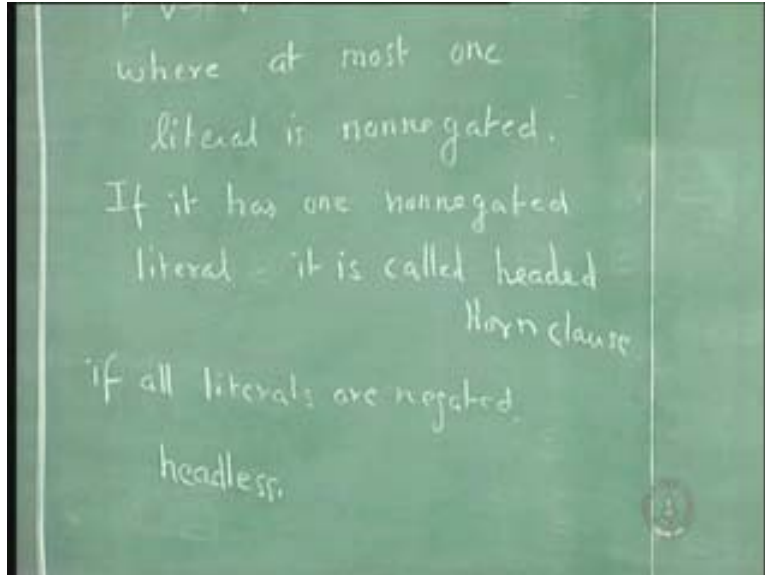 where at most one
literal is nonnegated.
If it has one nonnegated
literal - it is called headed
Horn clause
if all literals are negated.
headless.